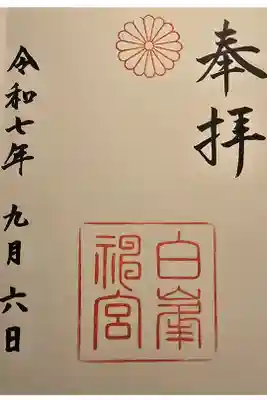 奉拝
白峯
神宮
令和七年 九月 六日